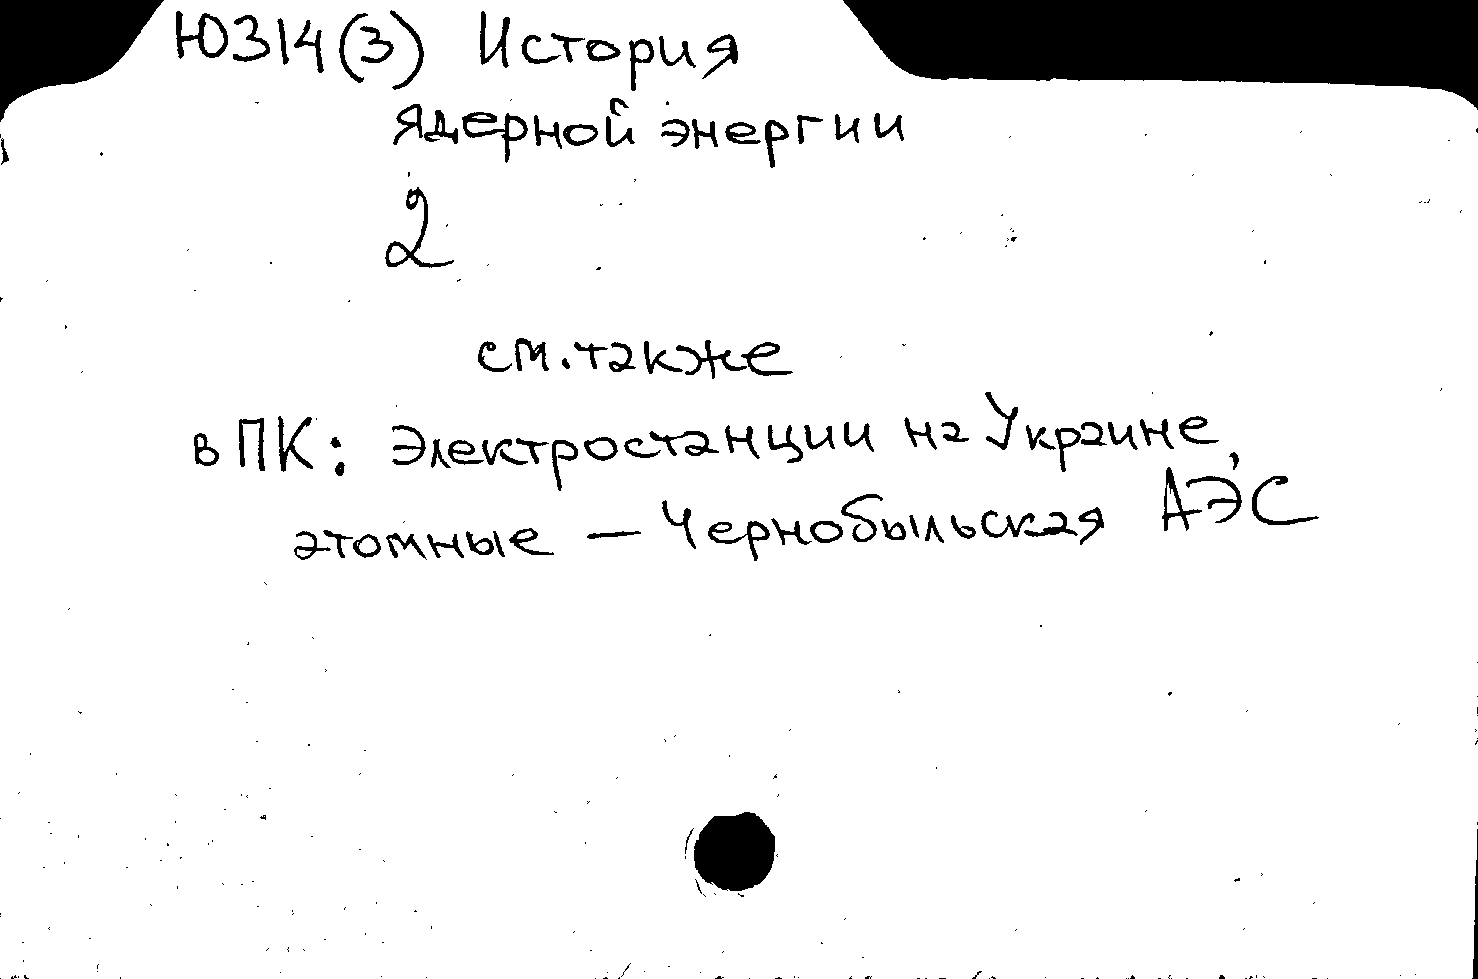 Ю314(3) История
ядерной энергии
2
см. также
в ПК: Электростанции на Украине,
атомные — Чернобыльская АЭС